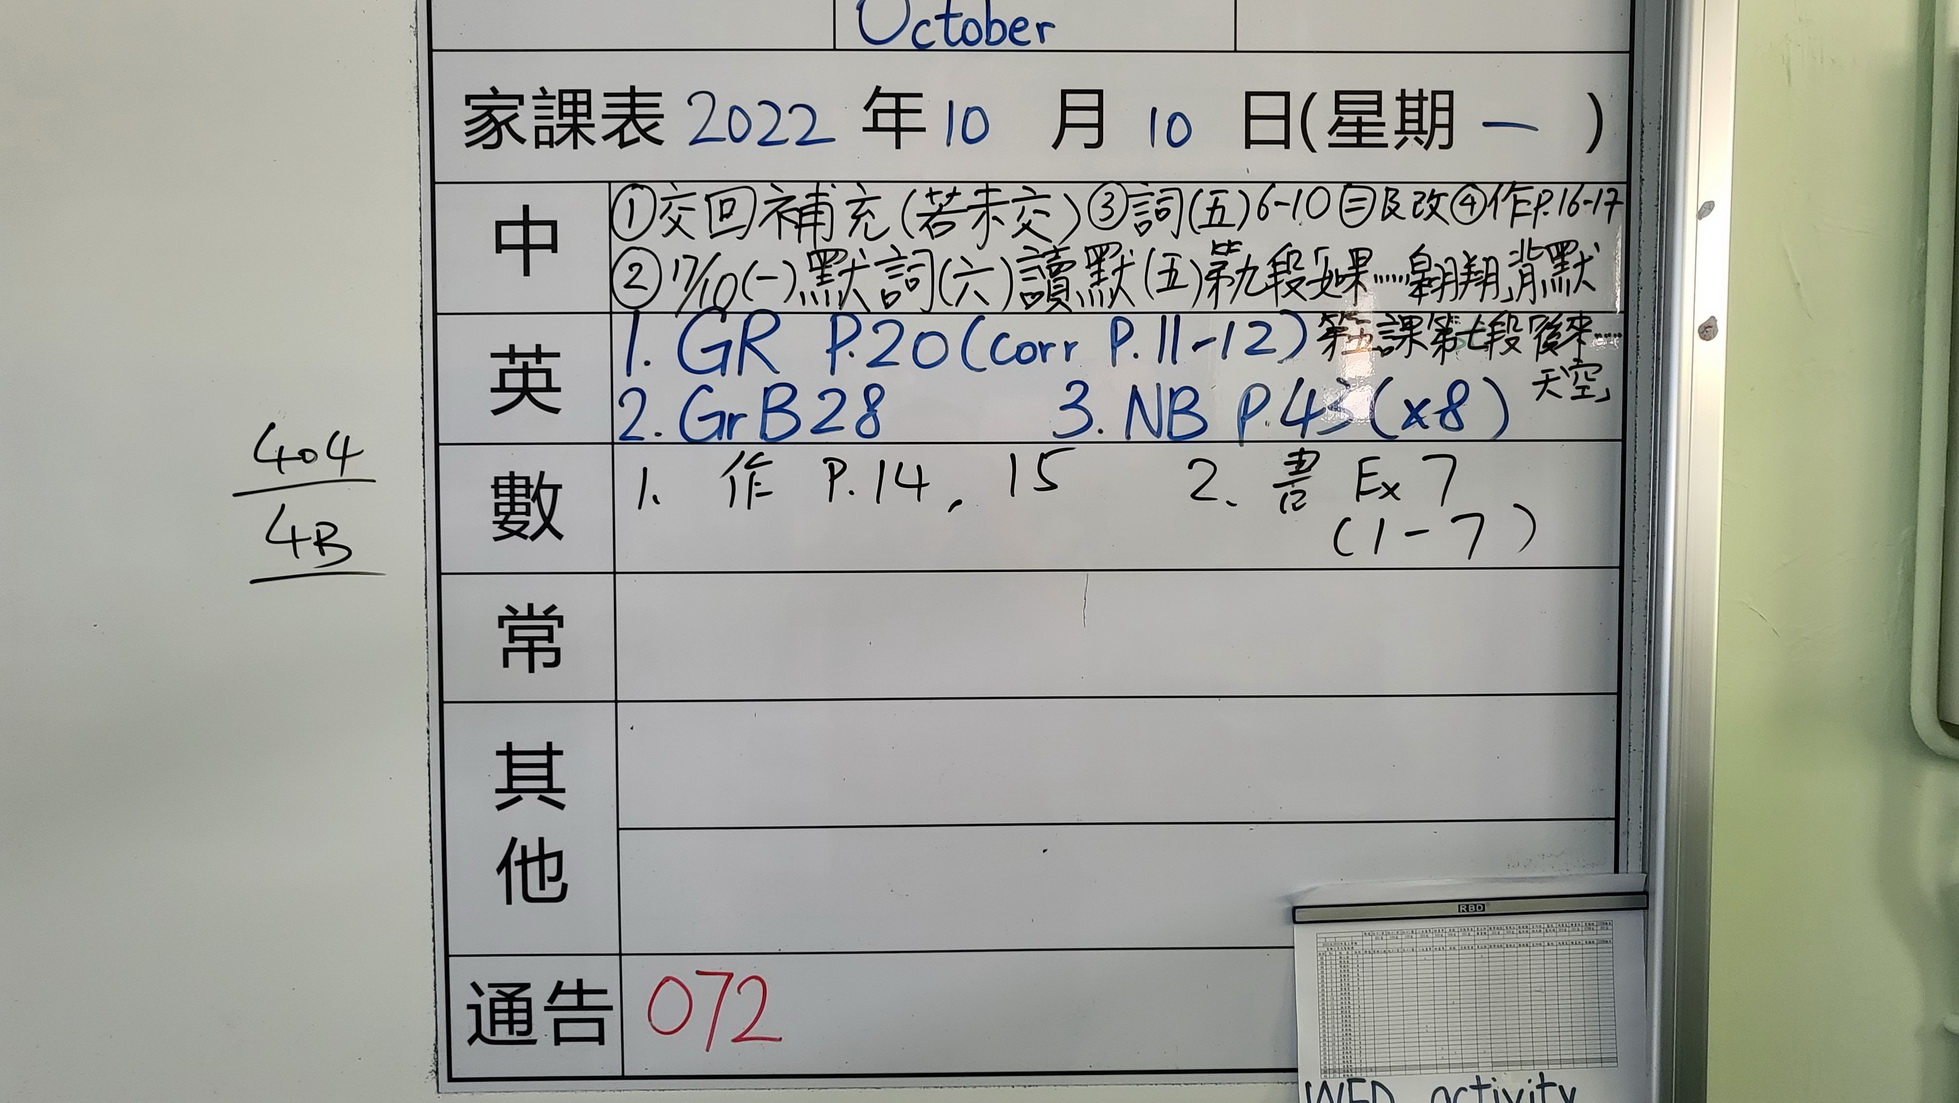 October
家課表 2022 年 10 月 10 日(星期 一 )
中
①交回補充(若未交)③詞(五)6-10㊁及改④作P.16-17
②17/10(一)默詞(六)讀默(五)第九段「如果……翱翔」背默
第五課第七段「後來……
天空」
英
1. GR P.20(corr P.11-12)
2. GrB28 3. NB P.43(x8)
404
4B
數
1. 作 P.14, 15 2. 書 Ex 7
(1-7)
常
其他
通告
072
RBD
WED activity